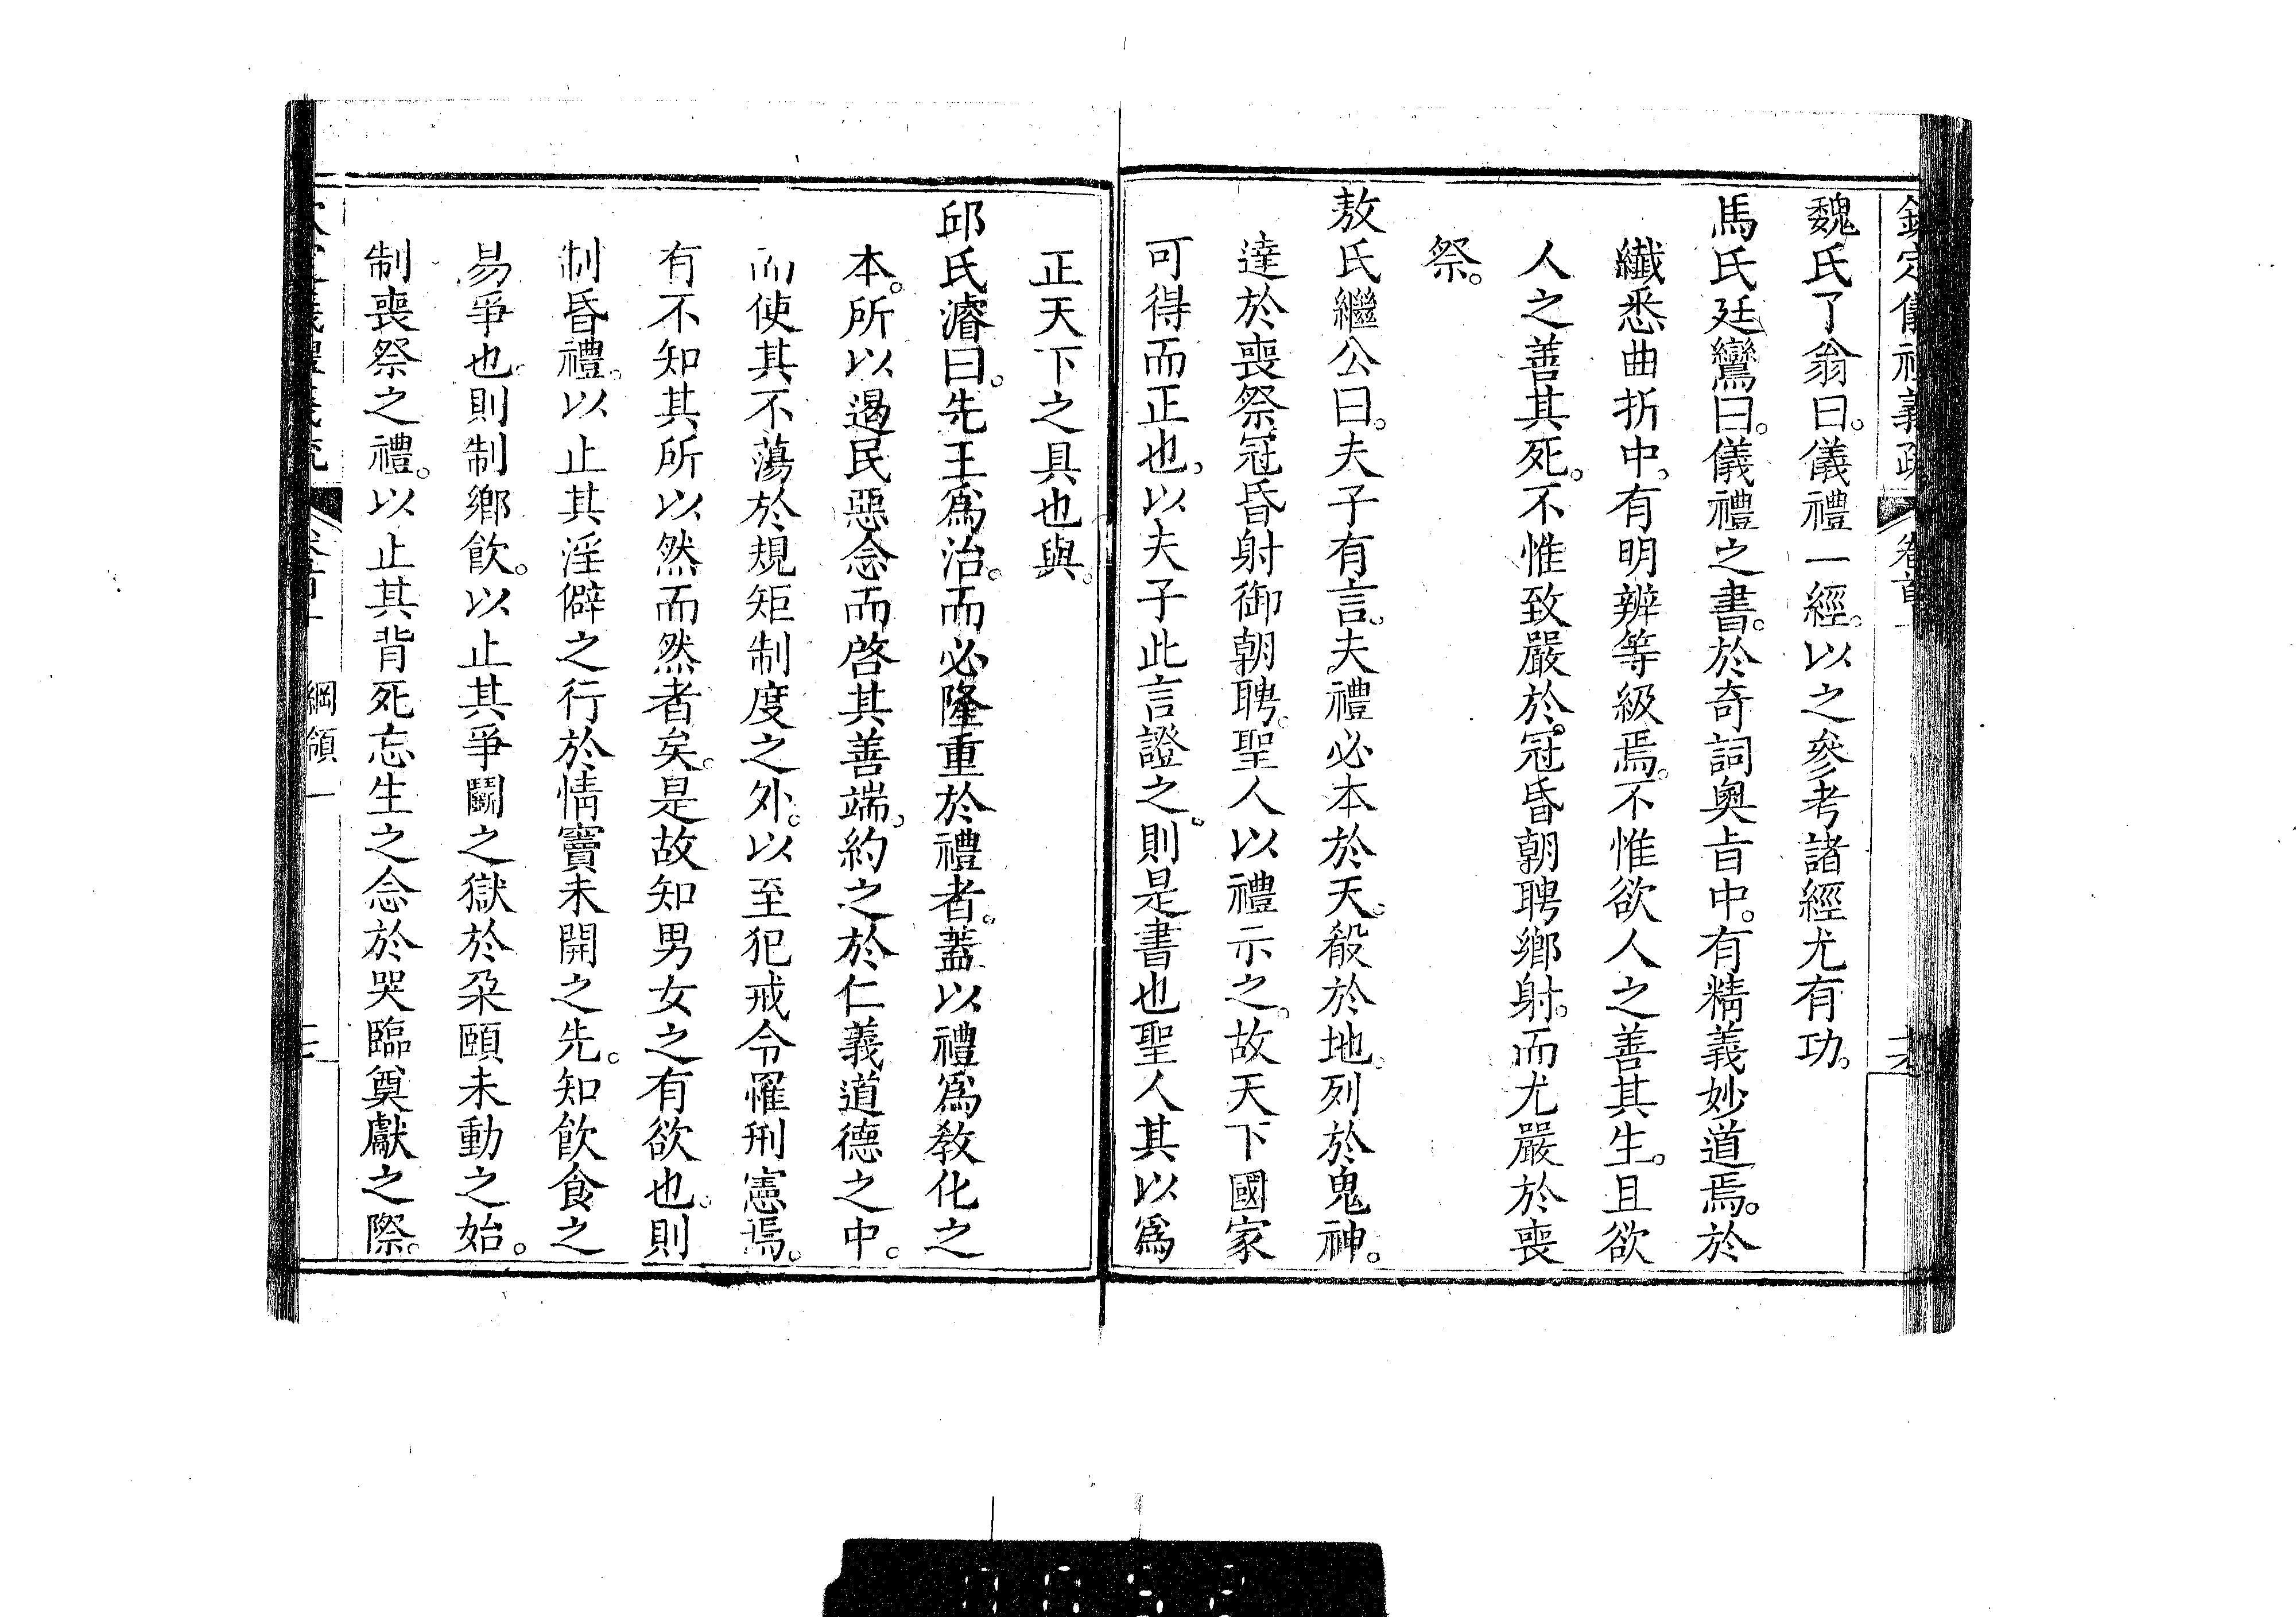 魏氏了翁曰。儀禮一經。以之參考諸經尤有功。
馬氏廷鸞曰。儀禮之書。於奇詞奧旨中。有精義妙道焉。於
纖悉曲折中。有明辨等級焉。不惟欲人之善其生。且欲
人之善其死。不惟致嚴於。冠昏朝聘鄉射。而尤嚴於喪
祭。
敖氏繼公曰。夫子有言。夫禮必本於天。殽於地。列於鬼神。
達於喪祭冠昏射御朝聘。聖人以禮示之。故天下國家
可得而正也。以夫子此言證之。則是書也聖人其以爲
正天下之具也與。
邱氏濬曰。先王爲治。而必隆重於禮者。蓋以禮爲教化之
本。所以遏民惡念而啓其善端。約之於仁義道德之中。
而使其不蕩於規矩制度之外。以至犯戒令罹刑憲焉。
有不知其所以然而然者矣。是故知男女之有欲也。則
制昏禮。以止其淫僻之行於情竇未開之先。知飲食之
易爭也。則制鄉飲。以止其爭鬭之獄於朶頤未動之始。
制喪祭之禮。以止其背死忘生之念於哭臨奠獻之際。
綱領一